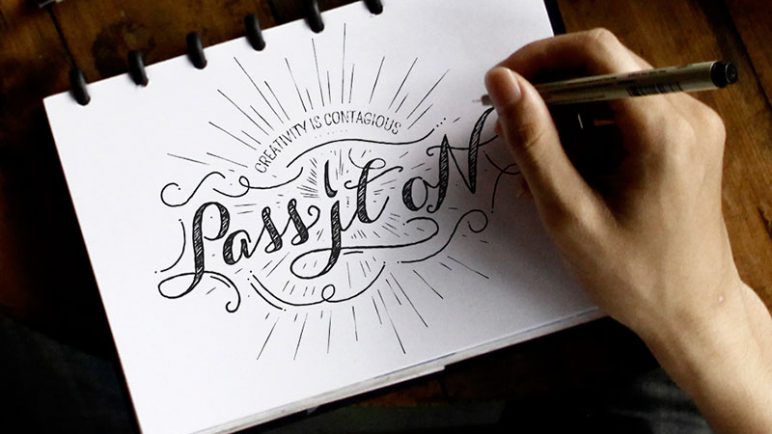 CREATIVITY IS CONTAGIOUS
Pass it oN